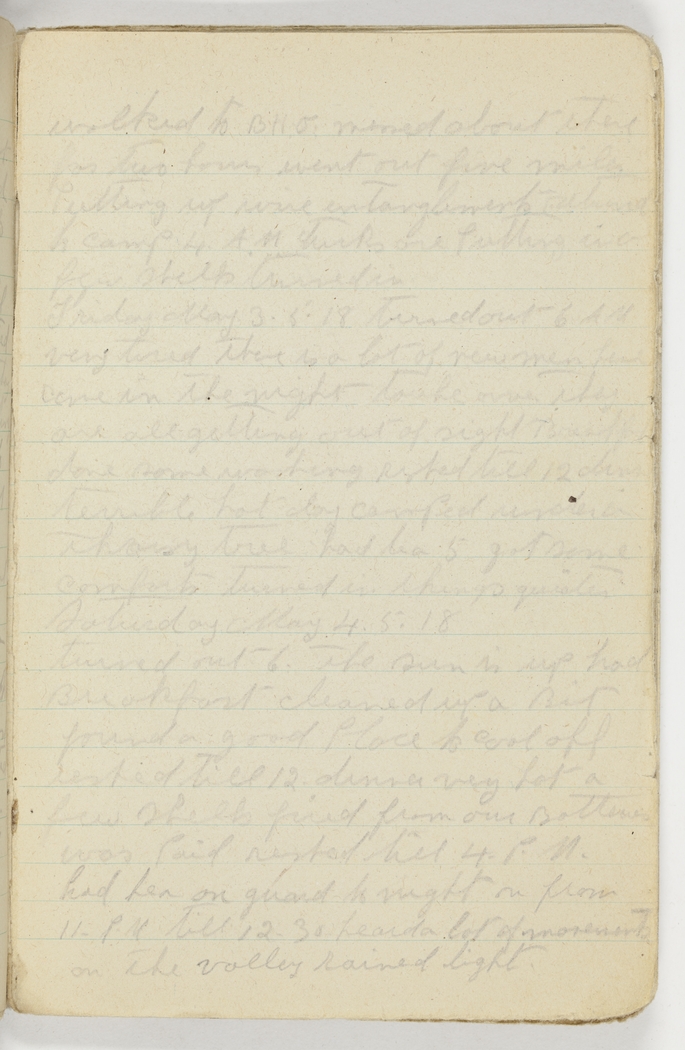 walked to B.H.Q. messed about there
for two hours went out five miles
Putting up wire entanglements returned
to camp 4. A.M. turks are Putting in a
few shells turned in.
Friday May 3.5.18 turned out 6 A.M
very tired there is a lot of new men
come in the night to take over they
are all getting out of sight Breakfast
done some washing rested till 12 dinner
terrible hot day camped under a
thorny tree had tea 5. got some
comforts turned in things quieter
Saturday May 4.5.18
turned out 6. the sun is up had
Breakfast cleaned up a Bit
found a good Place to cool off
rested till 12. dinner very hot a
few shells fired from our Batteries
was Paid rested till 4. P.M.
had tea on guard to night on from
11. P.M till 12.30 heard a lot of movements
on the valley rained light.